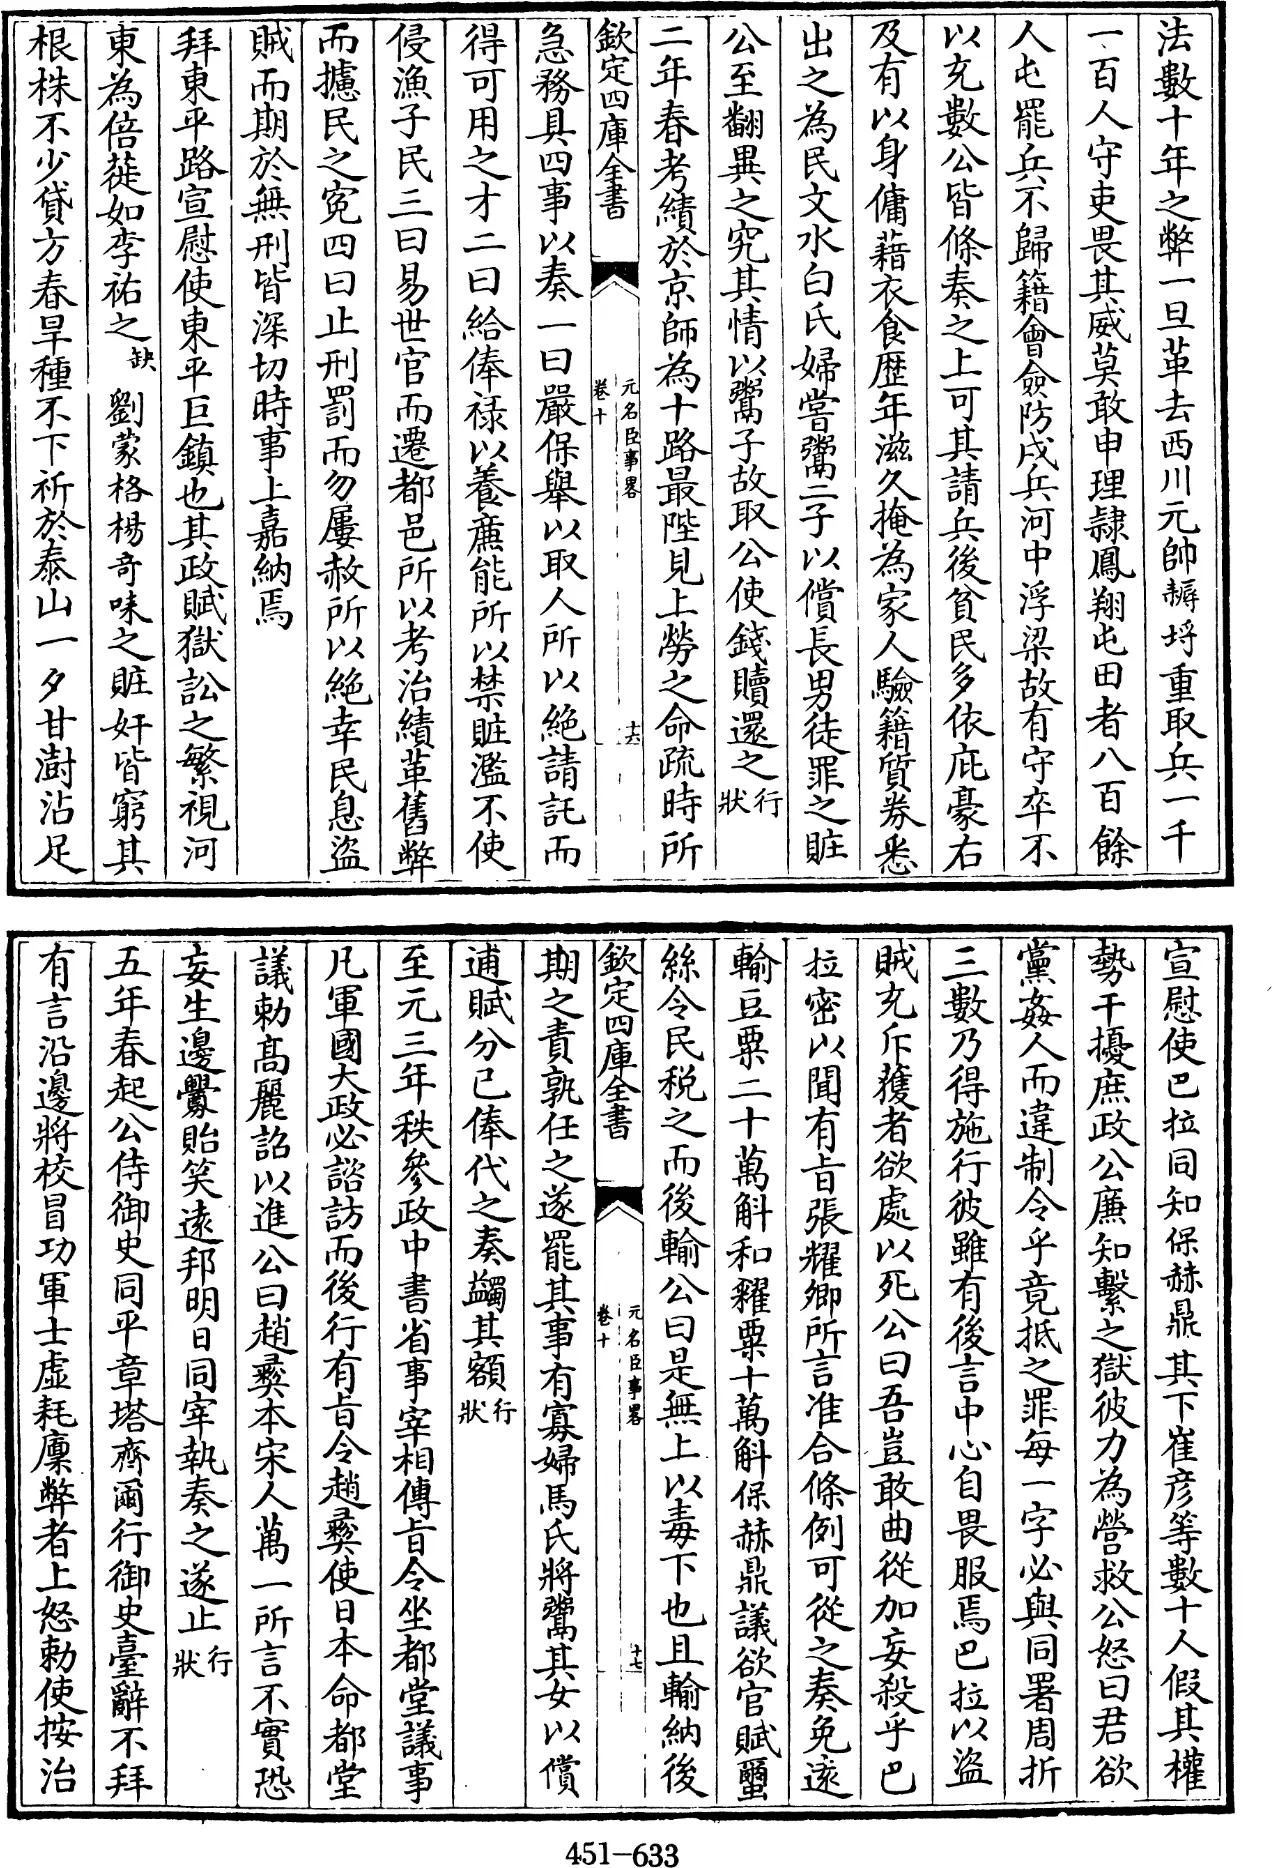 法數十年之弊一旦革去西川元帥耨埒重取兵一千
一百人守吏畏其威莫敢申理隷鳳翔屯田者八百餘
人屯罷兵不歸籍會僉防戍兵河中浮梁故有守卒不
以充數公皆條奏之上可其請兵後貧民多依庇豪右
及有以身傭藉衣食歴年滋久掩為家人驗籍質券悉
出之為民文水白氏婦嘗鬻二子以償長男徒罪之賍
公至翻異之究其情以鬻子故取公使錢贖還之行狀
二年春考績於京師為十路最陛見上勞之命疏時所
欽定四庫全書
元名臣事畧
卷十
十六
急務具四事以奏一曰嚴保舉以取人所以絶請託而
得可用之才二曰給俸禄以養㢘能所以禁賍濫不使
侵漁子民三曰易世官而遷都邑所以考治績革舊弊
而攄民之寃四曰止刑罰而勿屢赦所以絶幸民息盜
賊而期於無刑皆深切時事上嘉納焉
拜東平路宣慰使東平巨鎮也其政賦獄訟之繁視河
東為倍蓰如李祐之缺劉蒙格楊奇味之賍奸皆窮其
根株不少貸方春旱種不下祈於泰山一夕甘澍沾足
宣慰使巴拉同知保赫鼎其下崔彦等數十人假其權
勢干擾庶政公㢘知繫之獄彼力為營救公怒曰君欲
黨姦人而違制令乎竟抵之罪每一字必與同署周折
三數乃得施行彼雖有後言中心自畏服焉巴拉以盜
賊充斥獲者欲處以死公曰吾豈敢曲從加妄殺乎巴
拉密以聞有㫖張耀卿所言准合條例可從之奏免遠
輸豆粟二十萬斛和糴粟十萬斛保赫鼎議欲官賦蠒
絲令民税之而後輸公曰是無上以毒下也且輸納後
欽定四庫全書
元名臣事畧
卷十
十七
期之責孰任之遂罷其事有寡婦馬氏將鬻其女以償
逋賦分己俸代之奏蠲其額行狀
至元三年秩參政中書省事宰相傳㫖令坐都堂議事
凡軍國大政必諮訪而後行有㫖令趙彞使日本命都堂
議勅髙麗詔以進公曰趙彞本宋人萬一所言不實恐
妄生邊釁貽笑逺邦明日同宰執奏之遂止行狀
五年春起公侍御史同平章塔齊爾行御史臺辭不拜
有言沿邊將校冒功軍士虚耗廪弊者上怒勅使按治
451-633